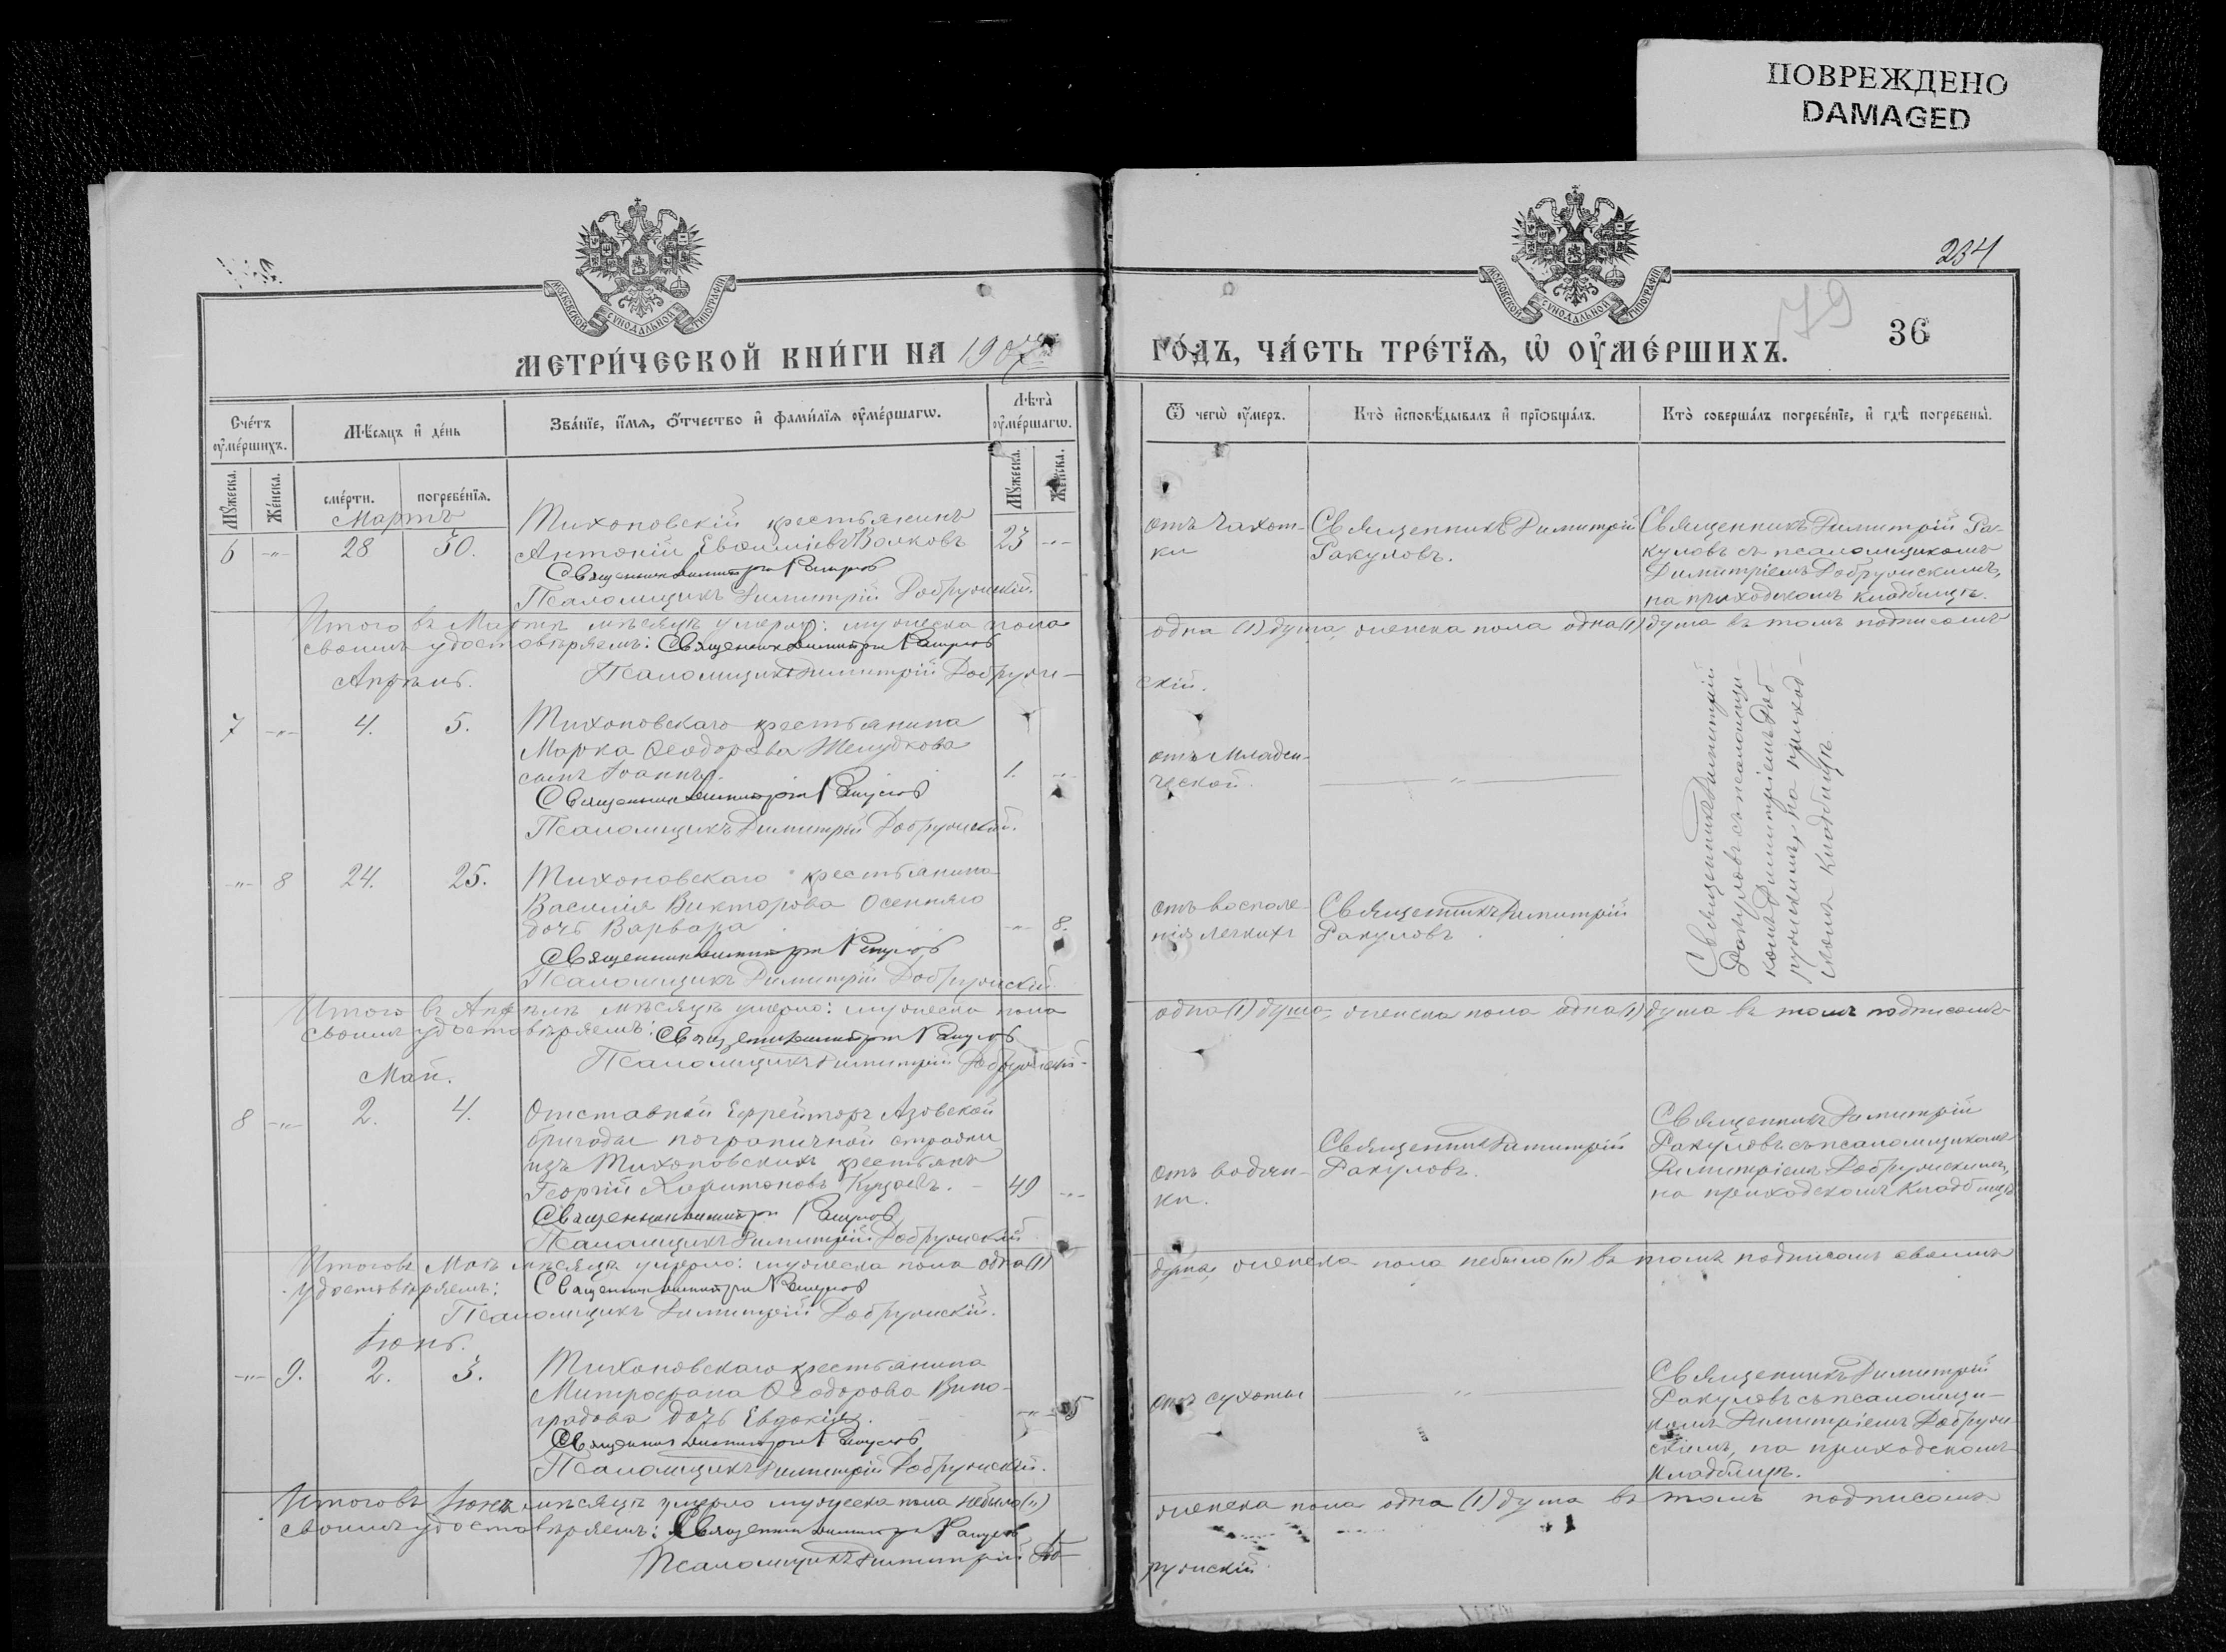 ПОВРЕЖДЕНО
DAMAGED
234
79
36
МОСКОВСКОЙ СѴНОДАЛЬНОЙ ТИПОГРАФІИ
МОСКОВСКОЙ СѴНОДАЛЬНОЙ ТИПОГРАФІИ
МЕТРИ́ЧЕСКОЙ КНИ́ГИ НА 1907
ГО́ДЪ, ЧА́СТЬ ТРЕ́ТІѦ, Ѡ҆ ОУ҆МЕ́РШИХЪ.
Сче́тъ оу҆ме́ршихъ.
Мѣ́сяцъ и҆ де́нь
Зва́нїе, и҆́мѧ, ѻ҆́тчество и҆ фами́лїѧ оу҆ме́ршагѡ.
Лѣ́та оу҆ме́ршагѡ.
Ѿ чегѡ̀ оу҆́меръ.
Кто̀ и҆сповѣ́дывалъ и҆ прїѡбща́лъ.
Кто̀ соверша́лъ погребе́нїе, и҆ гдѣ̀ погребены̀.
Мꙋ́жеска.
Же́нска.
сме́рти.
погребе́нїѧ.
Мꙋ́жеска.
Же́нска.
Мартъ
6 -"- 28 30.
Тихоновскій крестьянинъ
Антоній Евѳиміевъ Волковъ 23 -"-
Священникъ Димитрій Ракуловъ
Псаломщикъ Димитрій Добружскій.
отъ чахот-
ки
Священникъ Димитрій
Ракуловъ.
Священникъ Димитрій Ра-
куловъ съ псаломщикомъ
Димитріемъ Добружскимъ,
на приходскомъ кладбищѣ.
Итого въ Мартѣ мѣсяцѣ умерло: мужеска пола
одна (1) душа, женска пола одна (1) душа въ томъ подписомъ
своимъ удостовѣряемъ: Священникъ Димитрій Ракуловъ
Псаломщикъ Димитрій Добруж-
скій.
Апрѣль.
7 -"- 4. 5.
Тихоновскаго крестьянина
Марка Ѳеодорова Желудкова
сынъ Іоаннъ. 1. -"-
Священникъ Димитрій Ракуловъ
Псаломщикъ Димитрій Добружскій.
отъ младен-
ческой.
-"-
Священникъ Димитрій
Ракуловъ съ псаломщи-
комъ Димитріемъ Доб-
ружскимъ, на приход-
скомъ кладбищѣ.
-"- 8 24. 25.
Тихоновскаго крестьянина
Василія Викторова Осенняго
дочь Варвара -"- 8.
Священникъ Димитрій Ракуловъ
Псаломщикъ Димитрій Добружскій
отъ воспале-
нія легкихъ
Священникъ Димитрій
Ракуловъ
Итого въ Апрѣлѣ мѣсяцѣ умерло: мужеска пола
одна (1) душа, женска пола одна (1) душа въ томъ подписомъ
своимъ удостовѣряемъ: Священникъ Димитрій Ракуловъ
Псаломщикъ Димитрій Добружскій
Май.
8 -"- 2. 4.
Отставной Ефрейторъ Азовской
бригады пограничной стражи
изъ Тихоновскихъ крестьянъ
Георгій Харитоновъ 49 -"-
Священникъ Димитрій Ракуловъ
Псаломщикъ Димитрій Добружскій
отъ водян-
ки.
Священникъ Димитрій
Ракуловъ.
Священникъ Димитрій
Ракуловъ съ псаломщикомъ
Димитріемъ Добружскимъ,
на приходскомъ кладбищѣ
Итого въ Маѣ мѣсяцѣ умерло: мужеска пола одна (1)
душа, женска пола небыло (") въ томъ подписомъ своимъ
удостовѣряемъ: Священникъ Димитрій Ракуловъ
Псаломщикъ Димитрій Добружскій.
Іюнь.
-"- 9. 2. 3.
Тихоновскаго крестьянина
Митрофана Ѳеодорова Вино-
градова дочь Евдокія. -"- 5
Священникъ Димитрій Ракуловъ
Псаломщикъ Димитрій Добружскій.
отъ сухоты
-"-
Священникъ Димитрій
Ракуловъ съ псаломщи-
комъ Димитріемъ Добруж-
скимъ, на приходскомъ
кладбищѣ.
Итого въ Іюнѣ мѣсяцѣ умерло мужеска пола небыло (")
женска пола одна (1) душа въ томъ подписомъ
своимъ удостовѣряемъ: Священникъ Димитрій Ракуловъ
Псаломщикъ Димитрій Доб-
ружскій